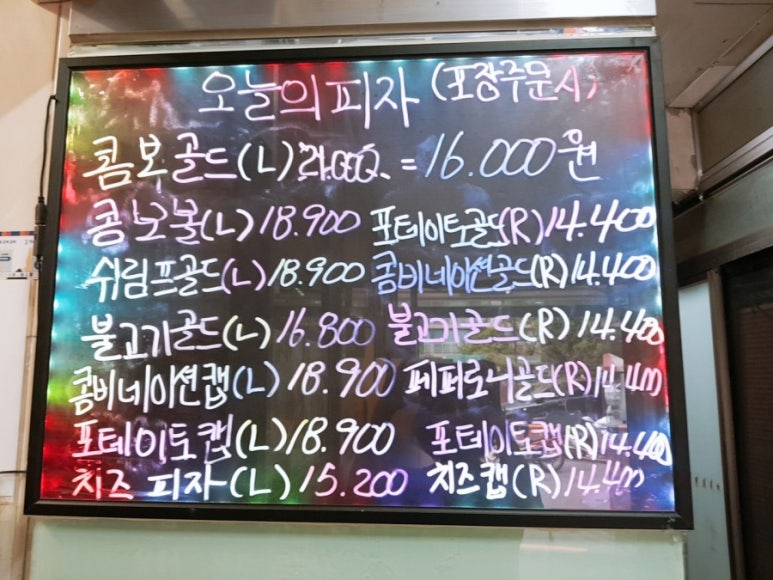 오늘의피자 (포장주문시)
콤보골드(L) 21.000 = 16.000원
콤보불(L) 18.900 포테이토골드(R) 14.400
쉬림프골드(L) 18.900 콤비네이션골드(R) 14.400
불고기골드(L) 16.800 불고기골드(R) 14.400
콤비네이션캡(L) 18.900 페퍼로니골드(R) 14.400
포테이토캡(L) 18.900 포테이토캡(R) 14.400
치즈 피자(L) 15.200 치즈캡(R) 14.400